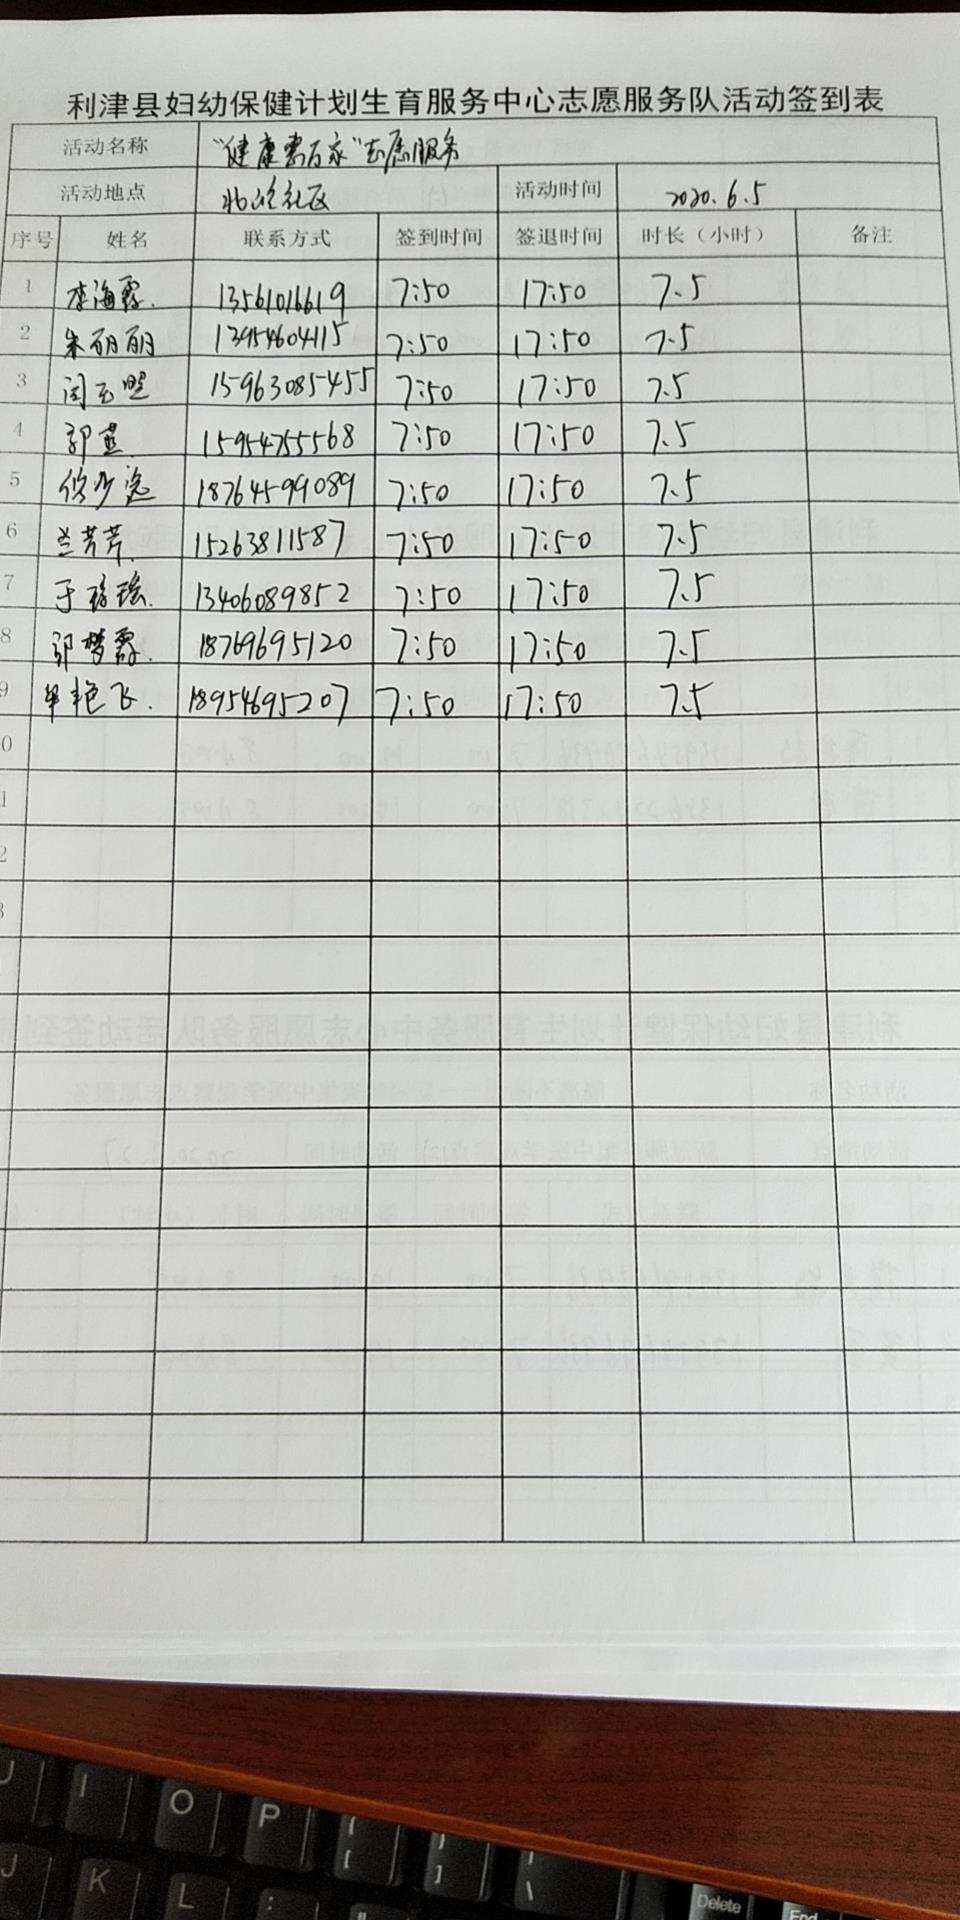 利津县妇幼保健计划生育服务中心志愿服务队活动签到表
活动名称 “健康惠万家”志愿服务
活动地点 社区 活动时间 2020.6.5
序号 姓名 联系方式 签到时间 签退时间 时长（小时） 备注
1 李海霞 13561016619 7:50 17:50 7.5
2 朱丽丽 13954604115 7:50 17:50 7.5
3 15963085455 7:50 17:50 7.5
4 郭燕 15954755568 7:50 17:50 7.5
5 18764599089 7:50 17:50 7.5
6 兰芳芳 15263811587 7:50 17:50 7.5
7 于瑶瑶 13406089852 7:50 17:50 7.5
8 郭梦霞 18769695120 7:50 17:50 7.5
9 单艳飞 18954695207 7:50 17:50 7.5
0
1
2
3
J I O P { [ } ] | \
J K L : " Delete End